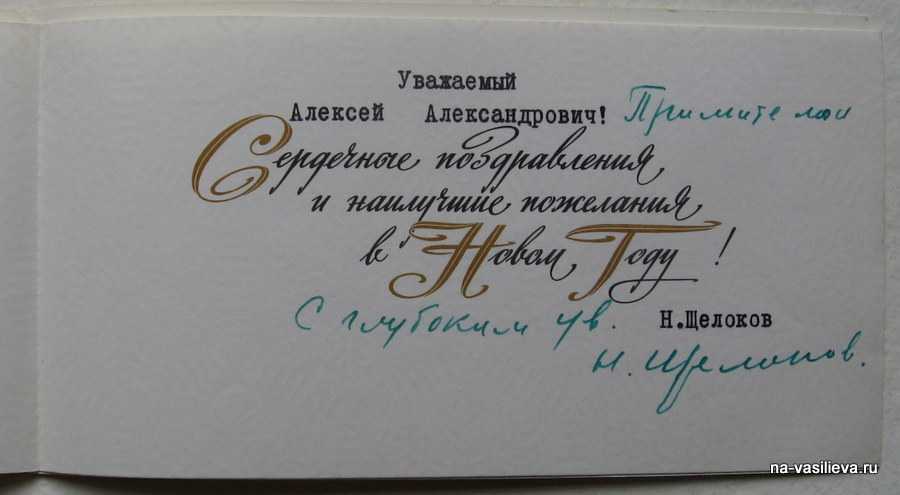 Уважаемый
Алексей Александрович! Примите мои
Сердечные поздравления
и наилучшие пожелания
в Новом Году!
С глубоким ув. Н.Щелоков
Н. Щелоков.
na-vasilieva.ru